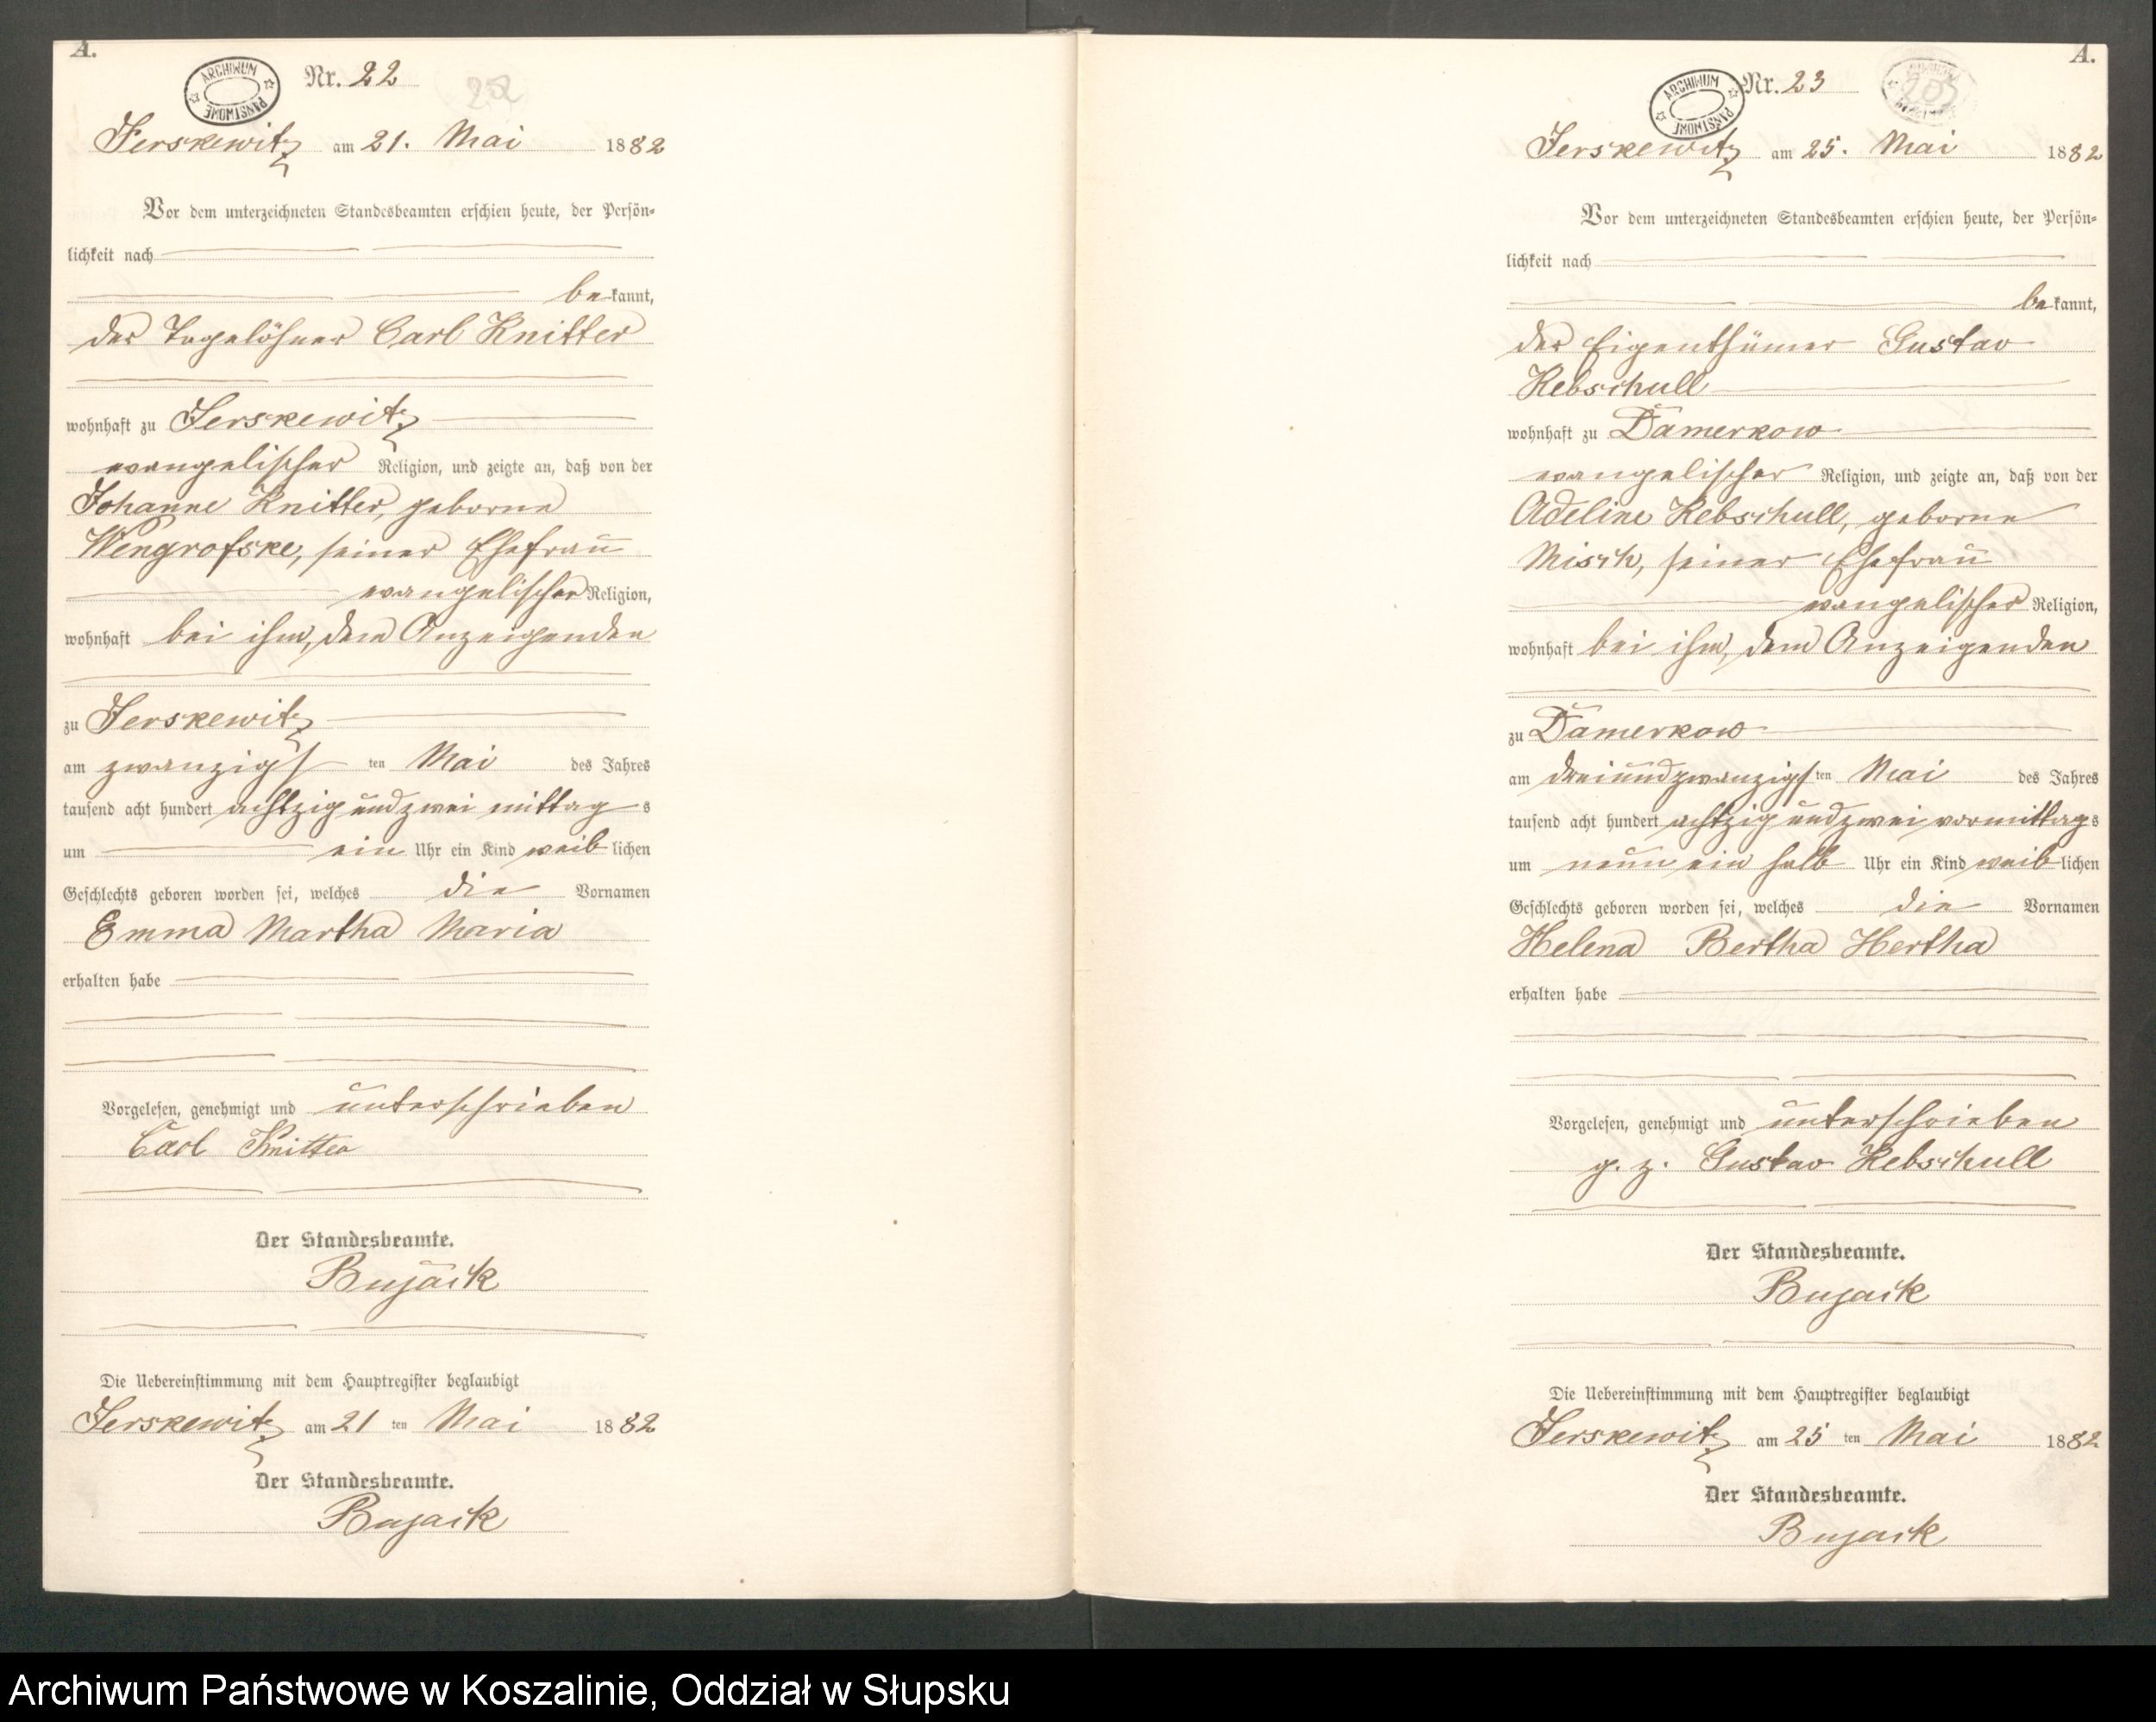 A.
ARCHIWUM PAŃSTWOWE
Nr. 22
Jerskewitz am 21. Mai 1882
Vor dem unterzeichneten Standesbeamten erschien heute, der Persön-
lichkeit nach
bekannt,
der Tagelöhner Carl Knitter
wohnhaft zu Jerskewitz
evangelischer Religion, und zeigte an, daß von der
Johanne Knitter, geborne
Wengrofske, seiner Ehefrau
evangelischer Religion,
wohnhaft bei ihm, dem Anzeigenden
zu Jerskewitz
am zwanzigsten Mai des Jahres
tausend acht hundert achtzig und zwei mittags
um ein Uhr ein Kind weiblichen
Geschlechts geboren worden sei, welches die Vornamen
Emma Martha Maria
erhalten habe
Vorgelesen, genehmigt und unterschrieben
Carl Knitter
Der Standesbeamte.
Bujack
Die Uebereinstimmung mit dem Hauptregister beglaubigt
Jerskewitz am 21 ten Mai 1882
Der Standesbeamte.
Bujack
A.
ARCHIWUM PAŃSTWOWE
Nr. 23
Jerskewitz am 25. Mai 1882
Vor dem unterzeichneten Standesbeamten erschien heute, der Persön-
lichkeit nach
bekannt,
der Eigenthümer Gustav
Kebschull
wohnhaft zu Damerkow
evangelischer Religion, und zeigte an, daß von der
Adeline Kebschull, geborne
Misch, seiner Ehefrau
evangelischer Religion,
wohnhaft bei ihm, dem Anzeigenden
zu Damerkow
am dreiundzwanzigsten Mai des Jahres
tausend acht hundert achtzig und zwei vormittags
um neun ein halb Uhr ein Kind weiblichen
Geschlechts geboren worden sei, welches die Vornamen
Helena Bertha Hertha
erhalten habe
Vorgelesen, genehmigt und unterschrieben
g. z. Gustav Kebschull
Der Standesbeamte.
Bujack
Die Uebereinstimmung mit dem Hauptregister beglaubigt
Jerskewitz am 25 ten Mai 1882
Der Standesbeamte.
Bujack
Archiwum Państwowe w Koszalinie, Oddział w Słupsku